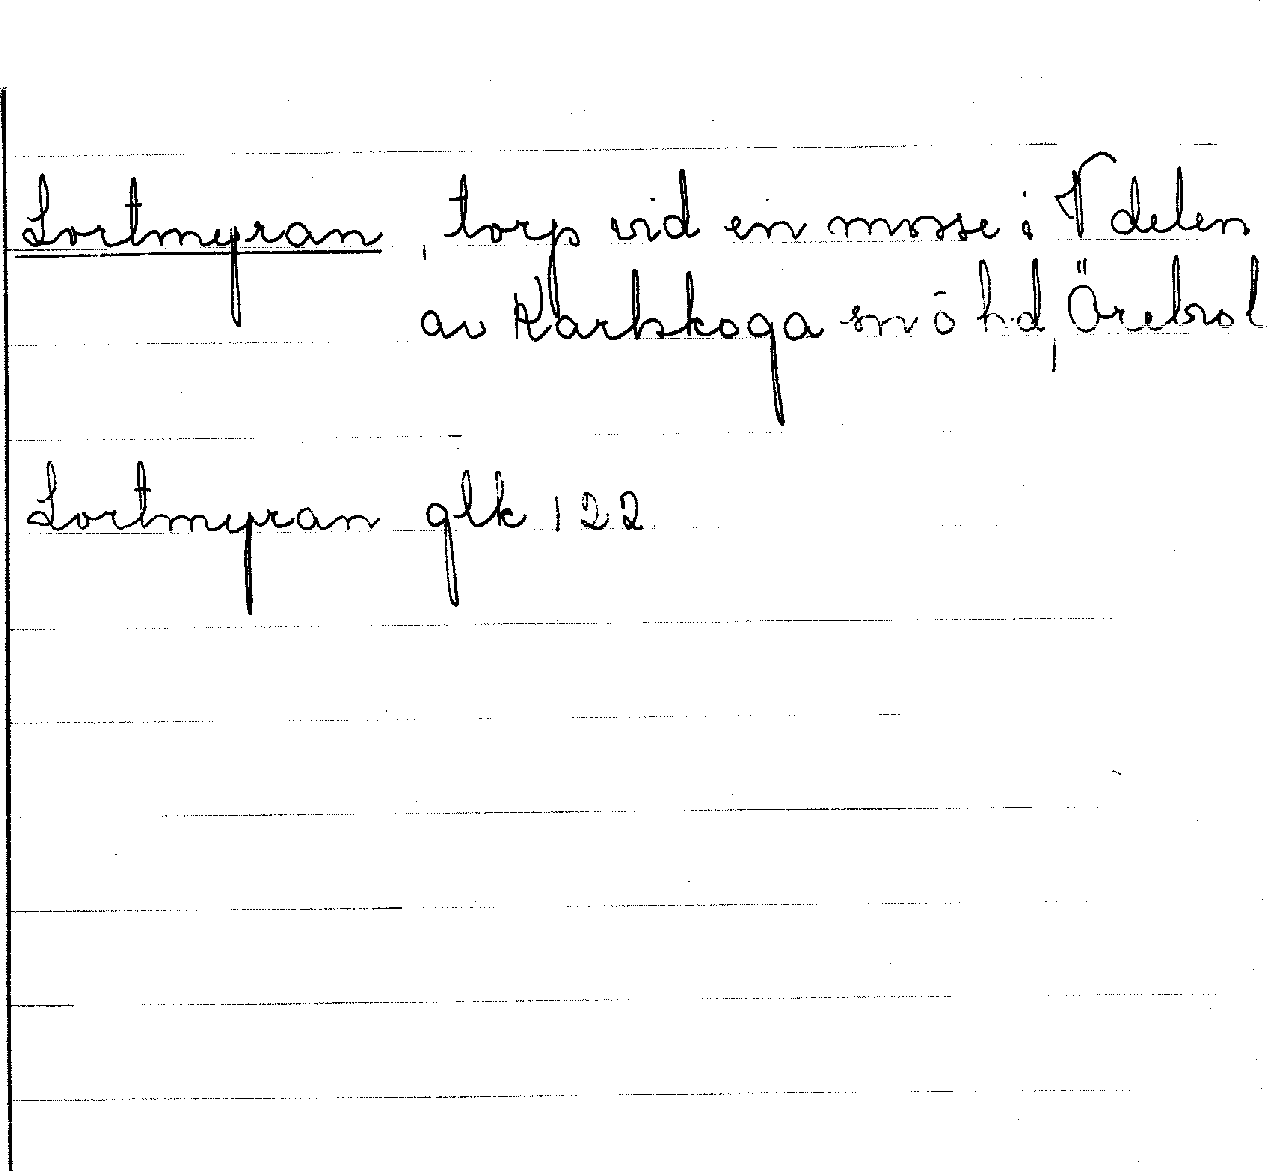 Lortmyran, torp vid en mosse i V delen
av Karlskoga sn ö hd, Örebro l
Lortmyran glk 122